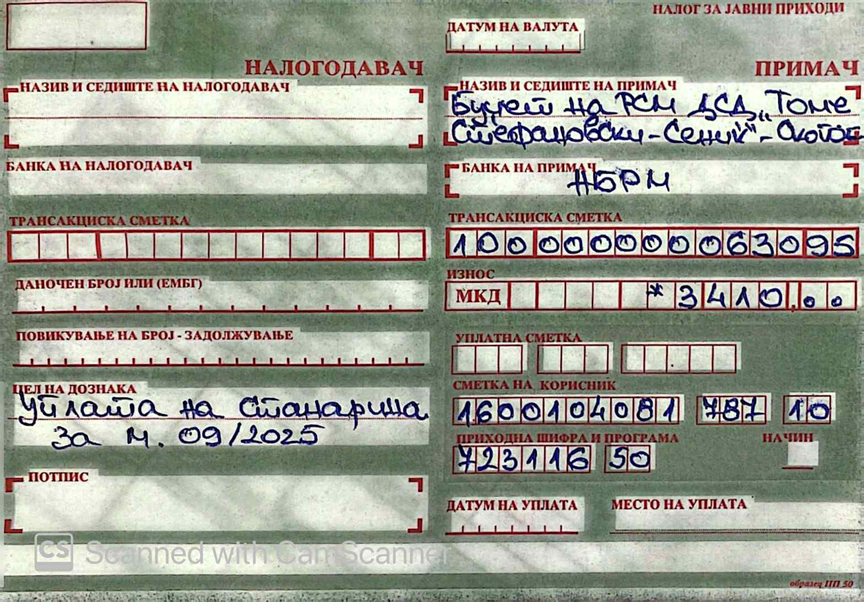 НАЛОГ ЗА ЈАВНИ ПРИХОДИ
ДАТУМ НА ВАЛУТА
НАЛОГОДАВАЧ
НАЗИВ И СЕДИШТЕ НА НАЛОГОДАВАЧ
БАНКА НА НАЛОГОДАВАЧ
ТРАНСАКЦИСКА СМЕТКА
ДАНОЧЕН БРОЈ ИЛИ (ЕМБГ)
ПОВИКУВАЊЕ НА БРОЈ - ЗАДОЛЖУВАЊЕ
ЦЕЛ НА ДОЗНАКА
Уплата на Станарина
за м. 09/2025
ПОТПИС
ПРИМАЧ
НАЗИВ И СЕДИШТЕ НА ПРИМАЧ
Буџет на РСМ ДСД „Томе
Стефановски-Сениќ"-Скопје
БАНКА НА ПРИМАЧ
НБРМ
ТРАНСАКЦИСКА СМЕТКА
100000000063095
ИЗНОС
МКД *3410,..
УПЛАТНА СМЕТКА
СМЕТКА НА КОРИСНИК
1600104081 787 10
ПРИХОДНА ШИФРА И ПРОГРАМА НАЧИН
723116 50
ДАТУМ НА УПЛАТА МЕСТО НА УПЛАТА
CS Scanned with CamScanner
образец ПП 50